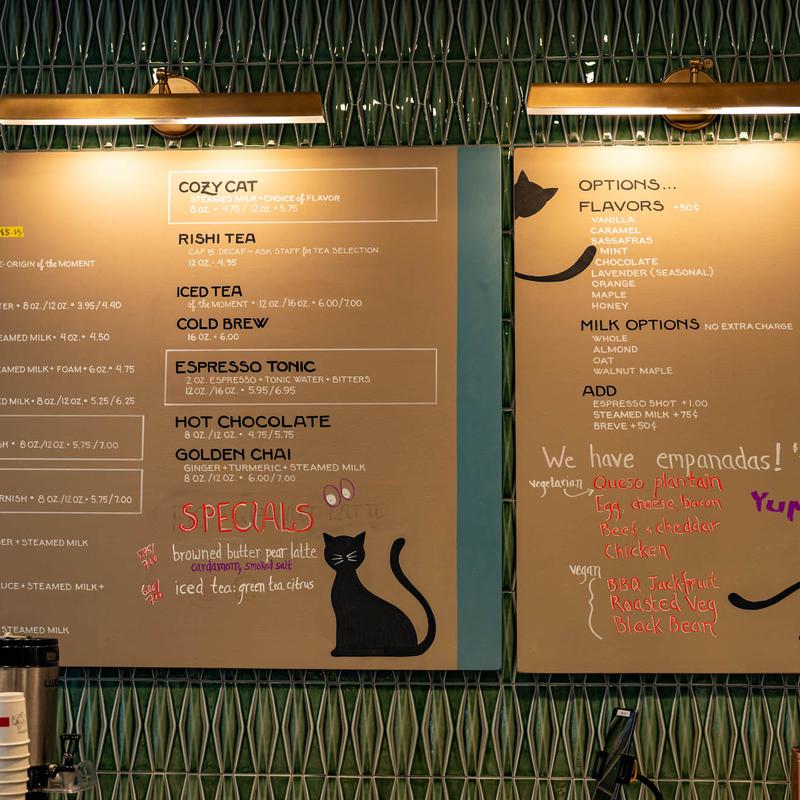 $5.25
E-ORIGIN of the MOMENT
TER • 8 OZ./12 OZ. • 3.95/4.40
EAMED MILK • 4 OZ. • 4.50
EAMED MILK + FOAM • 6 OZ. • 4.75
ED MILK • 8 OZ./12 OZ. • 5.25/6.25
SH • 8 OZ./12 OZ. • 5.75/7.00
RNISH • 8 OZ./12 OZ. • 5.75/7.00
DER + STEAMED MILK
UCE + STEAMED MILK +
STEAMED MILK
COZY CAT
STEAMED MILK + CHOICE of FLAVOR
8 OZ. • 4.75 / 12 OZ. • 5.75
RISHI TEA
CAF or DECAF ~ ASK STAFF for TEA SELECTION.
12 OZ. • 4.95
ICED TEA
of the MOMENT • 12 OZ./16 OZ. • 6.00/7.00
COLD BREW
16 OZ. • 6.00
ESPRESSO TONIC
2 OZ. ESPRESSO + TONIC WATER + BITTERS
12 OZ./16 OZ. • 5.95/6.95
HOT CHOCOLATE
8 OZ./12 OZ. • 4.75/5.75
GOLDEN CHAI
GINGER + TURMERIC + STEAMED MILK
8 OZ./12 OZ. • 6.00/7.00
SPECIALS
LATTE
5.75/
7.00
browned butter pear latte
cardamom, smoked salt
6.00/
7.00
iced tea: green tea citrus
OPTIONS...
FLAVORS +50¢
VANILLA
CARAMEL
SASSAFRAS
MINT
CHOCOLATE
LAVENDER (SEASONAL)
ORANGE
MAPLE
HONEY
MILK OPTIONS NO EXTRA CHARGE
WHOLE
ALMOND
OAT
WALNUT MAPLE
ADD
ESPRESSO SHOT +1.00
STEAMED MILK +75¢
BREVE +50¢
We have empanadas! $
vegetarian Queso plantain
Egg, cheese, bacon
Yum
Beef + cheddar
Chicken
vegan
BBQ Jackfruit
Roasted Veg
Black Bean